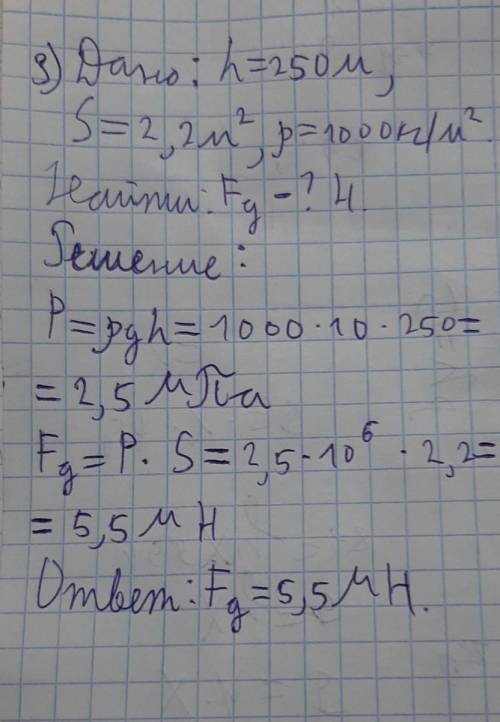 3) Дано: h=250м,
S=2,2м², p=1000кг/м²
Найти: Fg-? Н.
Решение:
P=pgh=1000·10·250=
=2,5 МПа
Fg=P·S=2,5·10⁶·2,2=
=5,5 МН
Ответ: Fg=5,5МН.